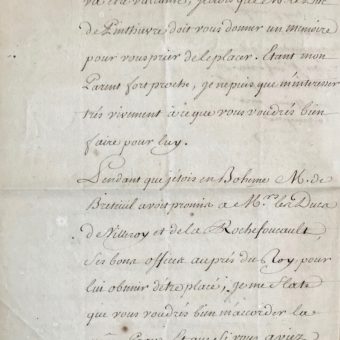 va era vacante, je sais que M. le Duc
de Pinthiévre doit vous donner un mémoire
pour vous prier de le placer. Etant mon
Parent fort proche, je ne puis que m'interesser
trés vivement à ce que vous voudrés bien
faire pour luy.
Pendant que j'étois en Boheme M. de
Breteuil avoit promis à M.rs les Ducs
de Villeroy et de la Rochefoucault,
ses bons offices auprès du Roy pour
lui obtenir d'etre placé, je me flate
que vous voudrés bien m'accorder la
vous aviez